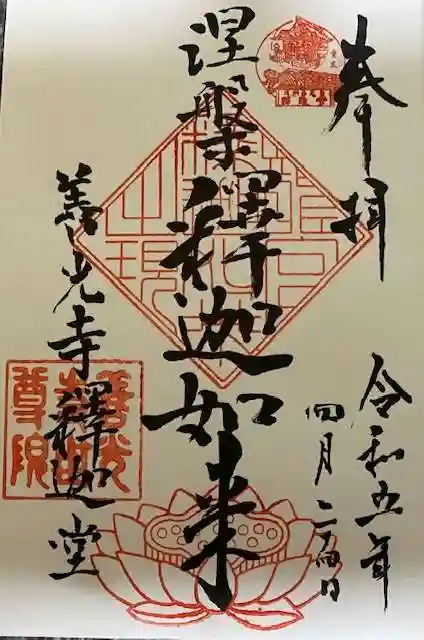 奉拝
令和五年
四月二十四日
涅槃釋迦如来
善光寺釋迦堂